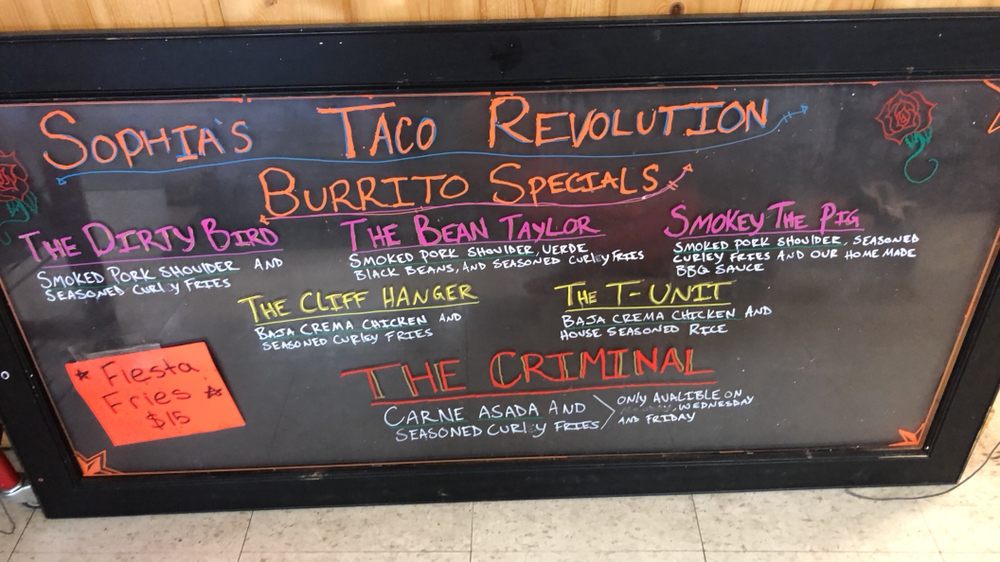 SOPHIA'S TACO REVOLUTION
BURRITO SPECIALS
THE DIRTY BIRD
SMOKED PORK SHOULDER AND
SEASONED CURLY FRIES
THE BEAN TAYLOR
SMOKED PORK SHOULDER, VERDE
BLACK BEANS, AND SEASONED CURLEY FRIES
SMOKEY THE PIG
SMOKED PORK SHOULDER, SEASONED
CURLEY FRIES AND OUR HOME MADE
BBQ SAUCE
THE CLIFF HANGER
BAJA CREMA CHICKEN AND
SEASONED CURLEY FRIES
THE T-UNIT
BAJA CREMA CHICKEN AND
HOUSE SEASONED RICE
Fiesta
Fries
$15
THE CRIMINAL
CARNE ASADA AND
SEASONED CURLEY FRIES
ONLY AVALIBLE ON
WEDNESDAY
AND FRIDAY